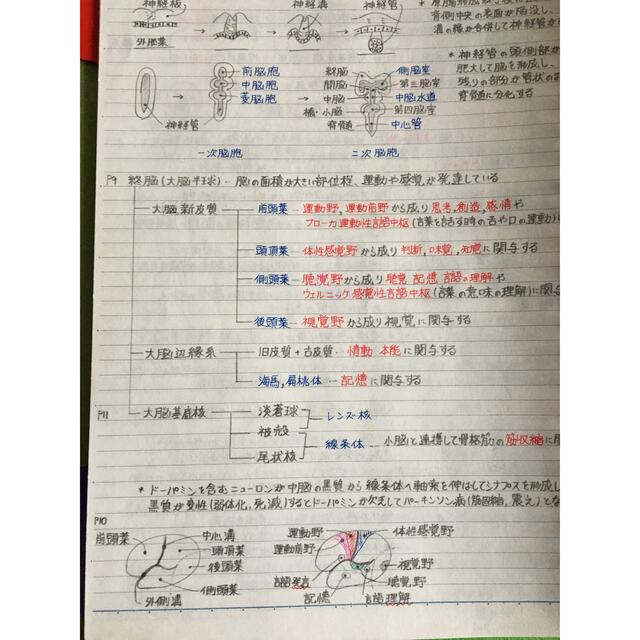 神経板
神経溝
神経管
背側中央の表面が陥没し、
溝の縁が合併して神経管が
外胚葉
* 神経管の頭側部が
肥大して脳を形成し、
残りの部分が管状の
脊髄に分化する
前脳胞
中脳胞
菱脳胞
神経管
終脳
間脳
中脳
橋・小脳
脊髄
側脳室
第三脳室
中脳水道
第四脳室
中心管
一次脳胞
二次脳胞
P9 終脳(大脳半球) - 脳の面積が大きい部位程、運動や感覚が発達している
大脳新皮質
前頭葉 - 運動野,運動前野から成り 思考,創造,感情や
ブローカ運動性言語中枢(言葉を話す時の舌や口の運動)に
頭頂葉 - 体性感覚野から成り 判断,味覚,知覚に関与する
側頭葉 - 聴覚野から成り 聴覚 記憶 言語の理解や
ウェルニッケ感覚性言語中枢(言葉の意味の理解)に関
後頭葉 - 視覚野から成り視覚に関与する
大脳辺縁系
旧皮質+古皮質 - 情動 本能に関与する
海馬,扁桃体 - 記憶に関与する
P11 大脳基底核
淡蒼球
被殻
尾状核
レンズ核
線条体 - 小脳と連携して骨格筋の筋収縮に
* ドーパミンを含むニューロンが中脳の黒質から線条体へ軸索を伸ばしてシナプスを形成し
黒質が変性(弱体化,死滅)するとドーパミンが欠乏してパーキンソン病(筋固縮,震え)とな
P10
前頭葉
中心溝
頭頂葉
後頭葉
側頭葉
外側溝
運動野
運動前野
言語発言
記憶
体性感覚野
視覚野
聴覚野
言語理解